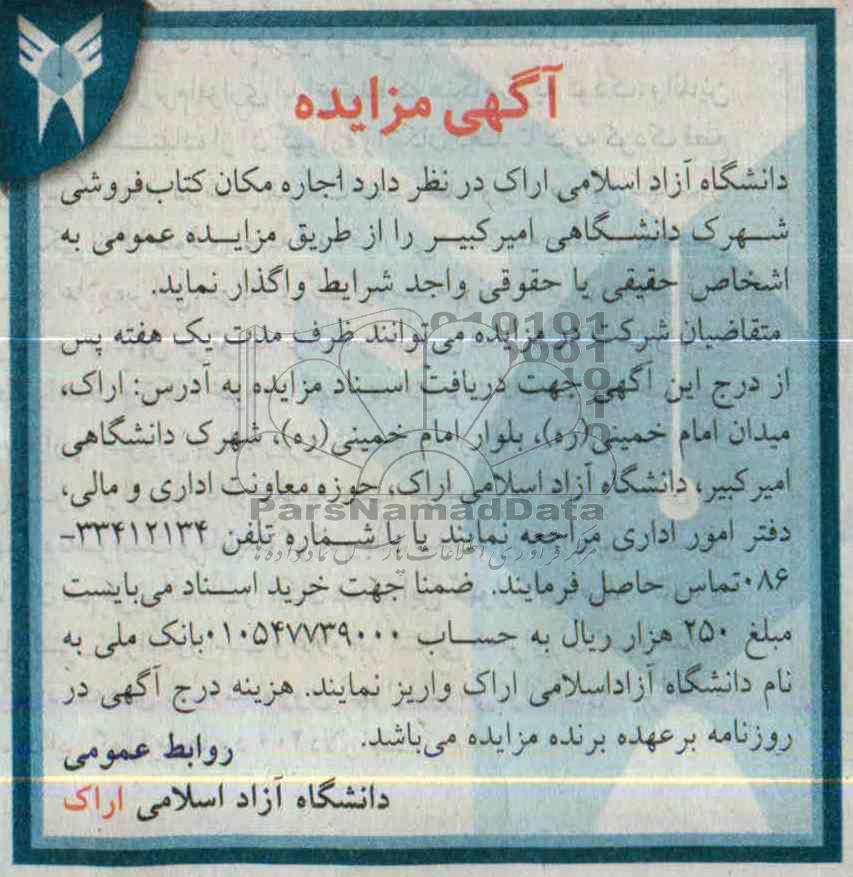 آگهی مزایده
دانشگاه آزاد اسلامی اراک در نظر دارد اجاره مکان کتاب‌فروشی
شهرک دانشگاهی امیرکبیر را از طریق مزایده عمومی به
اشخاص حقیقی یا حقوقی واجد شرایط واگذار نماید.
متقاضیان شرکت در مزایده می‌توانند ظرف مدت یک هفته پس
از درج این آگهی جهت دریافت اسناد مزایده به آدرس: اراک،
میدان امام خمینی(ره)، بلوار امام خمینی(ره)، شهرک دانشگاهی
امیرکبیر، دانشگاه آزاد اسلامی اراک، حوزه معاونت اداری و مالی،
ParsNamadData
دفتر امور اداری مراجعه نمایند یا با شماره تلفن ۳۳۴۱۲۱۳۴-
۰۸۶تماس حاصل فرمایند. ضمنا جهت خرید اسناد می‌بایست
مبلغ ۲۵۰ هزار ریال به حساب ۰۱۰۵۴۷۷۳۹۰۰۰بانک ملی به
نام دانشگاه آزاداسلامی اراک واریز نمایند. هزینه درج آگهی در
روزنامه برعهده برنده مزایده می‌باشد.
روابط عمومی
دانشگاه آزاد اسلامی اراک